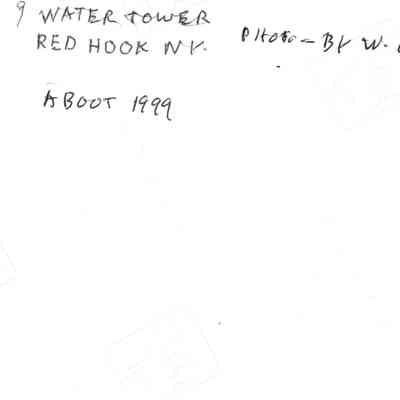 9 WATER TOWER
RED HOOK NY. PHOTO - BY W.
ABOOT 1999